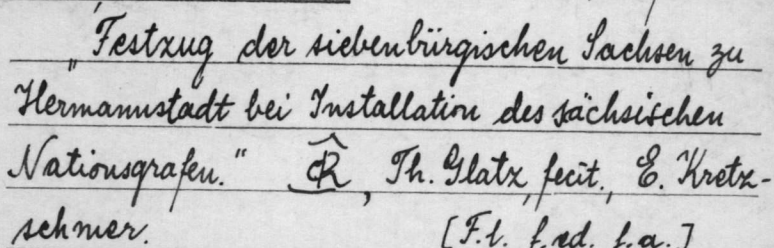 „Festzug der siebenbürgischen Sachsen zu
Hermannstadt bei Installation des sächsischen
Nationsgrafen.“ , Th. Glatz, fecit., E. Kretz-
schmer. [F.l. f.ed. f.a.]